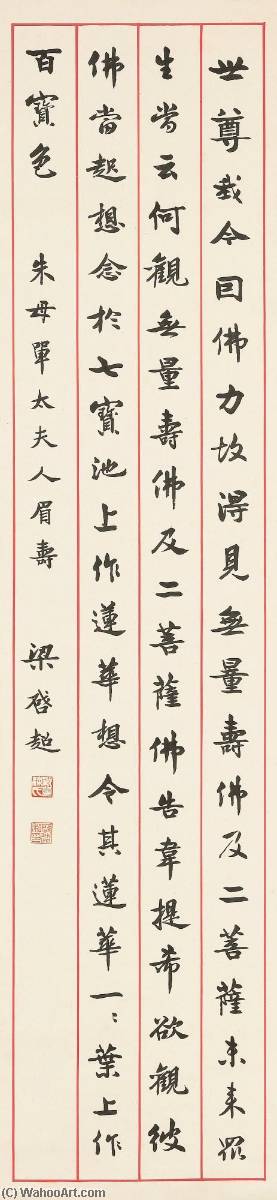 世尊我今因佛力故得見無量壽佛及二菩薩未來眾
生當云何觀無量壽佛及二菩薩佛告韋提希欲觀彼
佛當起想念於七寶池上作蓮華想令其蓮華一〻葉上作
百寶色 朱母單太夫人眉壽 梁啓超
(C) WahooArt.com
(C) WahooArt.com